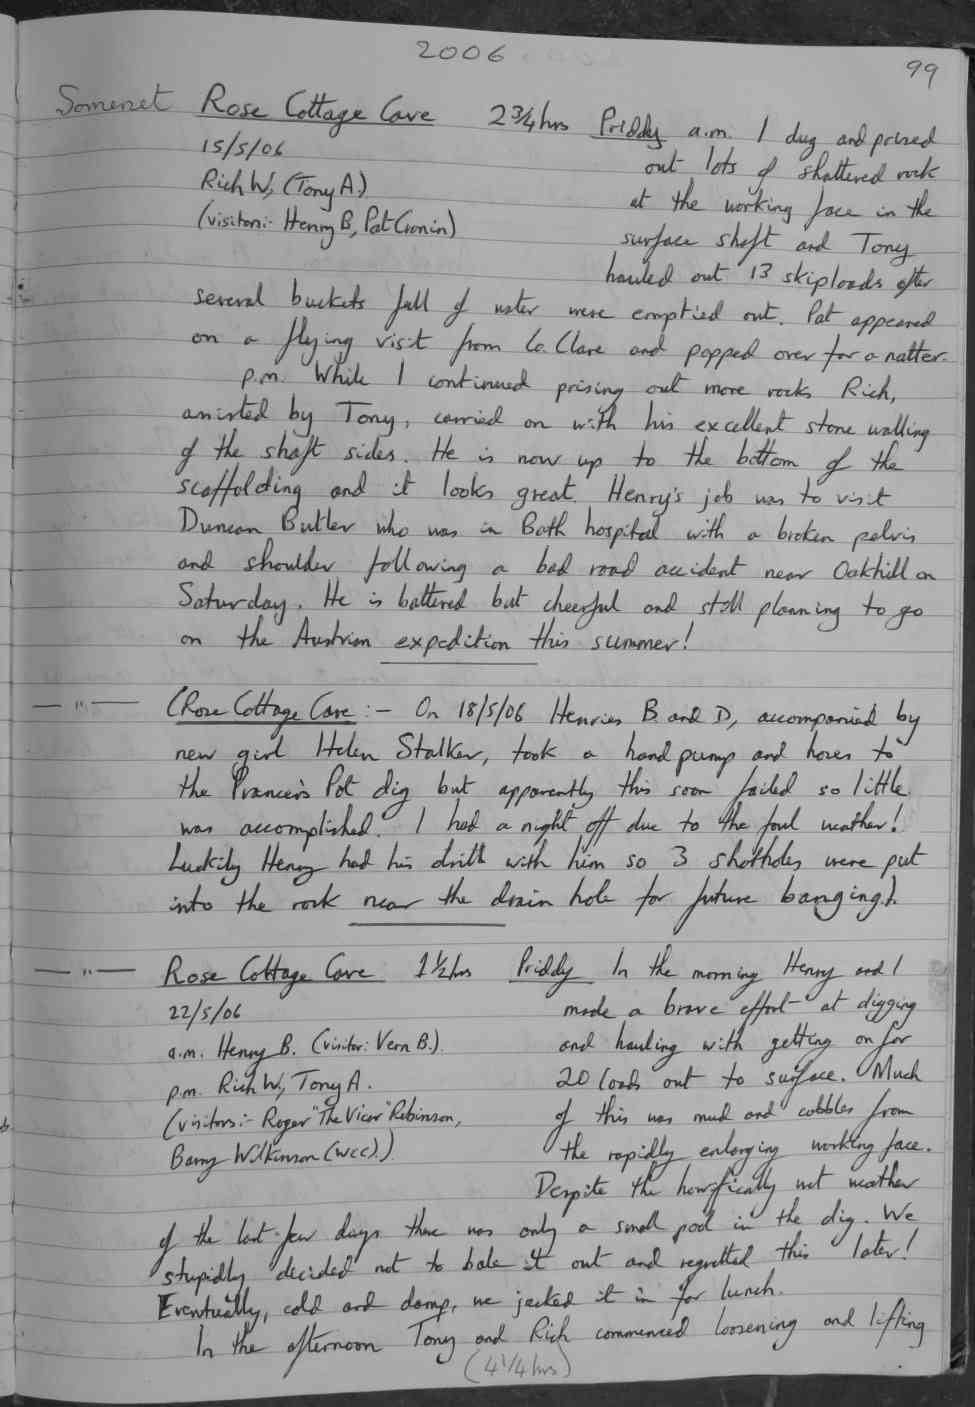 2006
99
Somerset Rose Cottage Cave 2 3/4 hrs Priddy a.m. I dug and prised
15/5/06 out lots of shattered rock
Rich W, (Tony A.) at the working face in the
(visitors:- Henry B, Pat Cronin) surface shaft and Tony
hauled out 13 skiploads after
several buckets full of water were emptied out. Pat appeared
on a flying visit from Co. Clare and popped over for a natter.
p.m. While I continued prising out more rocks Rich,
assisted by Tony, carried on with his excellent stone walling
of the shaft sides. He is now up to the bottom of the
scaffolding and it looks great. Henry's job was to visit
Duncan Butler who was in Bath hospital with a broken pelvis
and shoulder following a bad road accident near Oakhill on
Saturday. He is battered but cheerful and still planning to go
on the Austrian expedition this summer!
— " — (Rose Cottage Cave :- On 18/5/06 Henries B. and D, accompanied by
new girl Helen Stalker, took a hand pump and hoses to
the Prancer's Pot dig but apparently this soon failed so little
was accomplished. I had a night off due to the foul weather!
Luckily Henry had his drill with him so 3 shotholes were put
into the rock near the drain hole for future banging).
— " — Rose Cottage Cave 1 1/2 hrs Priddy In the morning Henry and I
22/5/06 made a brave effort at digging
a.m. Henry B. (visitor: Vern B.). and hauling with getting on for
p.m. Rich W, Tony A. 20 loads out to surface. Much
(visitors:- Roger "The Vicar" Robinson, of this was mud and cobbles from
Barry Wilkinson (WCC).) the rapidly enlarging working face.
Despite the horrifically wet weather
of the last few days there was only a small pool in the dig. We
stupidly decided not to bale it out and regretted this later!
Eventually, cold and damp, we jacked it in for lunch.
In the afternoon Tony and Rich commenced loosening and lifting
(4 1/4 hrs)